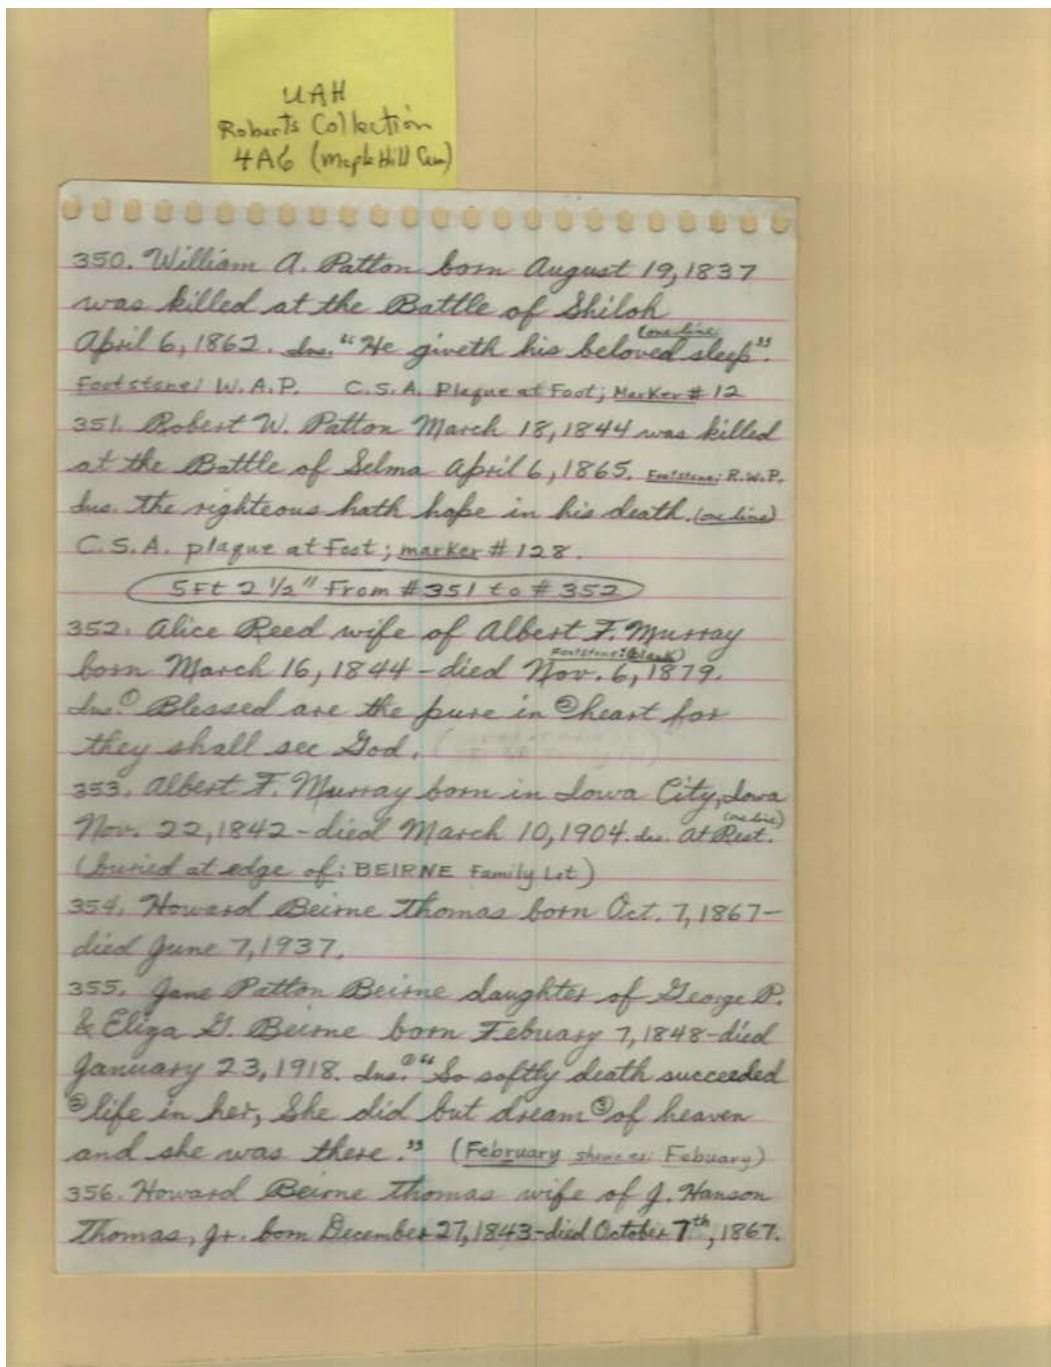 UAH
Roberts Collection
4A6 (Maple Hill Cem)
350. William A. Patton born August 19, 1837
was killed at the Battle of Shiloh
(one line)
April 6, 1862. Ins. "He giveth his beloved sleep".
Footstone: W.A.P. C.S.A. Plaque at Foot; Marker # 12
351. Robert W. Patton March 18, 1844 was killed
at the Battle of Selma April 6, 1865. Footstone: R.W.P.
Ins. The righteous hath hope in his death. (one line)
C.S.A. plaque at Foot; marker # 128.
5 Ft 2 1/2" From # 351 to # 352
352. Alice Reed wife of Albert F. Murray
Footstone: (blank)
born March 16, 1844 - died Nov. 6, 1879.
Ins. ① Blessed are the pure in ② heart for
they shall see God.
353. Albert F. Murray born in Iowa City, Iowa
(one line)
Nov. 22, 1842 - died March 10, 1904. Ins. At Rest.
(buried at edge of: BEIRNE Family Lot)
354. Howard Beirne Thomas born Oct. 7, 1867 -
died June 7, 1937.
355. Jane Patton Beirne daughter of George P.
& Eliza G. Beirne born Febuary 7, 1848 - died
January 23, 1918. Ins. ① "So softly death succeeded
② life in her, She did but dream ③ of heaven
and she was there." (February shown as: Febuary)
356. Howard Beirne Thomas wife of J. Hanson
Thomas, Jr. born December 27, 1843 - died October 7th, 1867.